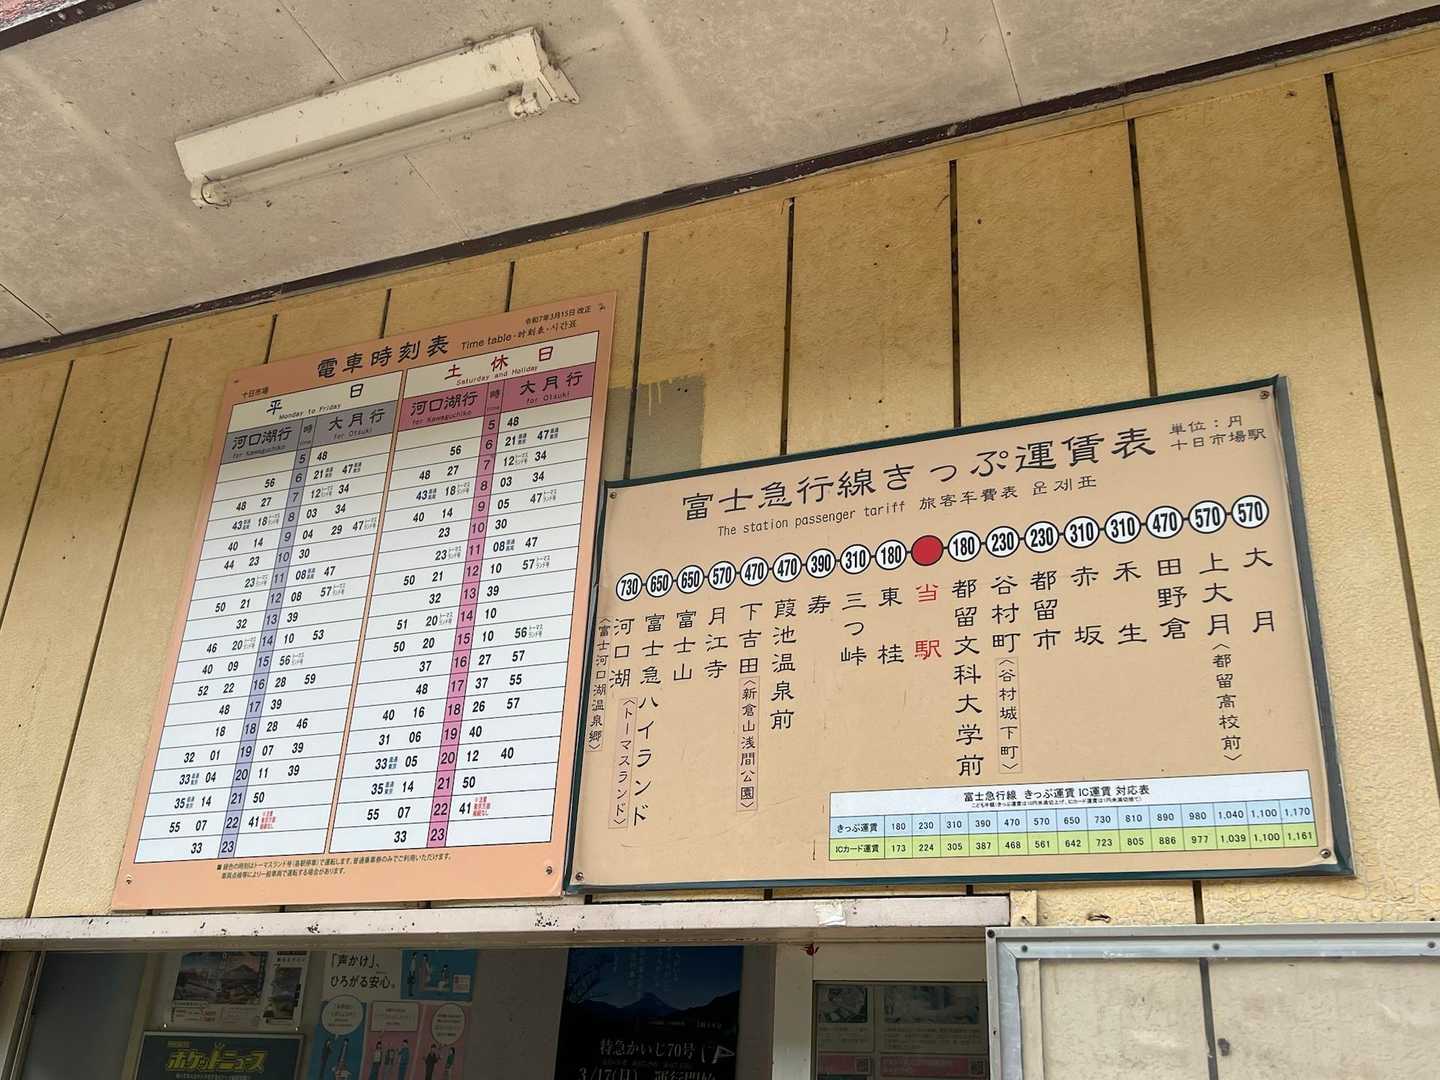 令和7年3月15日 改正
電車時刻表 Time table・時刻表・시간표
十日市場
平日
Monday to Friday
土休日
Saturday and Holiday
河口湖行 時 大月行
for Kawaguchiko time for Otsuki
河口湖行 時 大月行
for Kawaguchiko time for Otsuki
5 48
56 6 21 47
48 27 7 12 34
43 18 8 03 34
40 14 9 04 29 47
44 23 10 30
23 11 08 47
50 21 12 08 57
32 13 39
46 20 14 10 53
40 09 15 56
52 22 16 28 59
48 17 39
18 18 28 46
32 01 19 07 39
33 04 20 11 39
35 14 21 50
55 07 22 41
33 23
5 48
56 6 21 47
48 27 7 12 34
43 18 8 03 34
40 14 9 05 47
23 10 30
23 11 08 47
50 21 12 10 57
32 13 39
51 20 14 10
50 20 15 10 56
37 16 27 57
48 17 37 55
40 16 18 26 57
31 06 19 40
33 05 20 12 40
35 14 21 50
55 07 22 41
33 23
■ 緑色の時刻はトーマスランド号(各駅停車)で運転します。普通乗車券のみでご利用いただけます。
車両点検等により一般車両で運転する場合があります。
富士急行線きっぷ運賃表
単位：円
十日市場駅
The station passenger tariff 旅客车費表 운제표
730 650 650 570 470 470 390 310 180 180 230 230 310 310 470 570 570
河口湖〈富士河口湖温泉郷〉
富士急ハイランド〈トーマスランド〉
富士山
月江寺
下吉田〈新倉山浅間公園〉
葭池温泉前
寿
三つ峠
東桂
当駅
都留文科大学前
谷村町〈谷村城下町〉
都留市
赤坂
禾生
田野倉
上大月〈都留高校前〉
大月
富士急行線 きっぷ運賃 IC運賃 対応表
きっぷ運賃 180 230 310 390 470 570 650 730 810 890 980 1,040 1,100 1,170
ICカード運賃 173 224 305 387 468 561 642 723 805 886 977 1,039 1,100 1,161
「声かけ」、
ひろがる安心。
ポケットニュース
特急かいじ70号
3/17(日) 運行開始